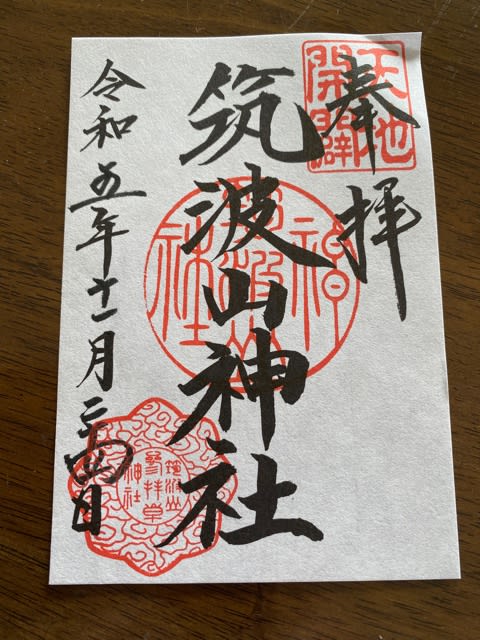 天地
開闢
奉拝
筑波山神社
筑波山
神社
令和五年十一月二十四日
筑波山
神社
參拝章